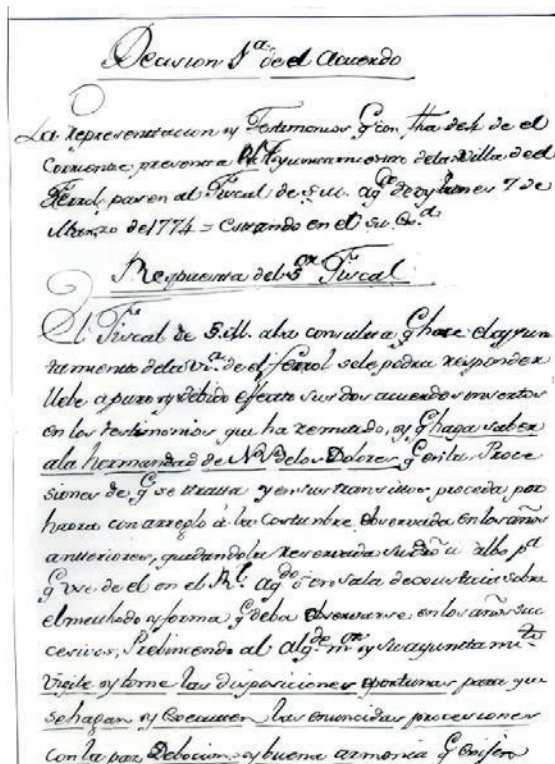 Decision 1ª de el Acuerdo
La representacion y Testimonios q con fha de 4 de el
Corriente presenta el Ayuntamiento dela Villa de el
Ferrol, pasen al Fiscal de S.M. agdo de oy lunes 7 de
Marzo de 1774 = Estando en el su Exª
Respuesta del Sor Fiscal
El Fiscal de S.M. ala consulta q hace el ayun
tamiento dela vª de el ferrol sele podra responder
llebe a puro y debido efecto sus dos acuerdos insertos
en los testimonios que ha remitido, y q haga saber
ala hermandad de Nª Sª delos Dolores q en las Proce
siones de q se tratta y en sus transittos proceda por
haora con arreglo à la Costumbre observada en los años
antteriores, quedandola reservada su dro à salbo pª
q use de el en el Rl. agdo ò en sala de Justicia sobre
el methodo y forma q deba observarse en los años suc
cesivos, Prebiniendo al algde mor y su ayuntamto
vigile y tome las disposiciones oportunas para que
se hagan y executen las enuncidas procesiones
con la paz Debocion, y buena armonia q exijen